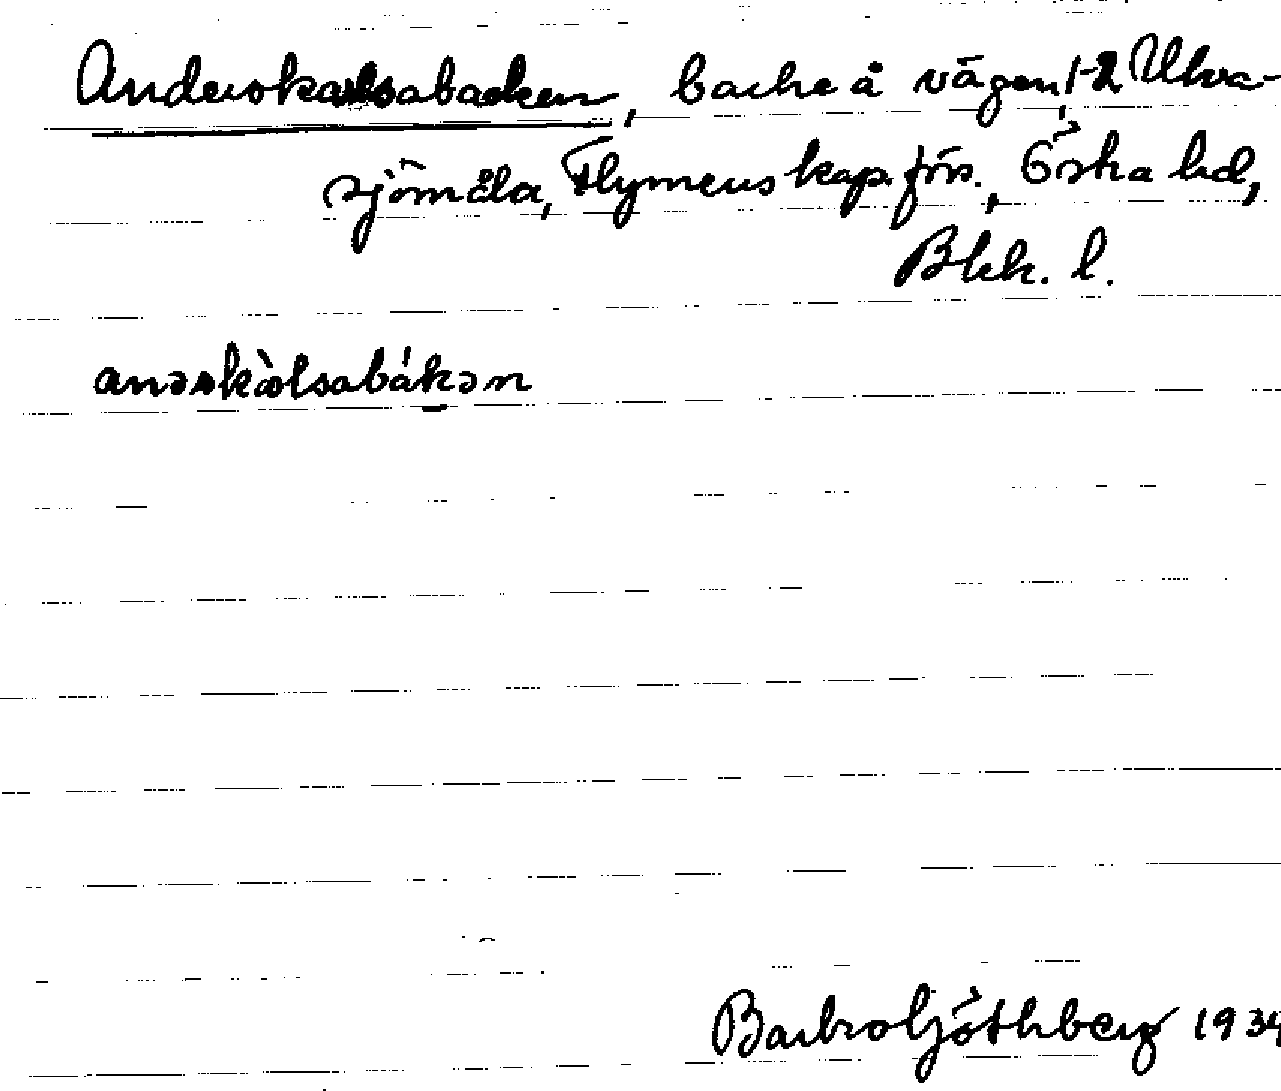 Anderskarlsabacken, backe å vägen, 1-2 Ulva-
sjömåla, Flymens kap. förs., Östra hd,
Blek. l.
anərkàlsabákən
Barbro Göthberg 1934